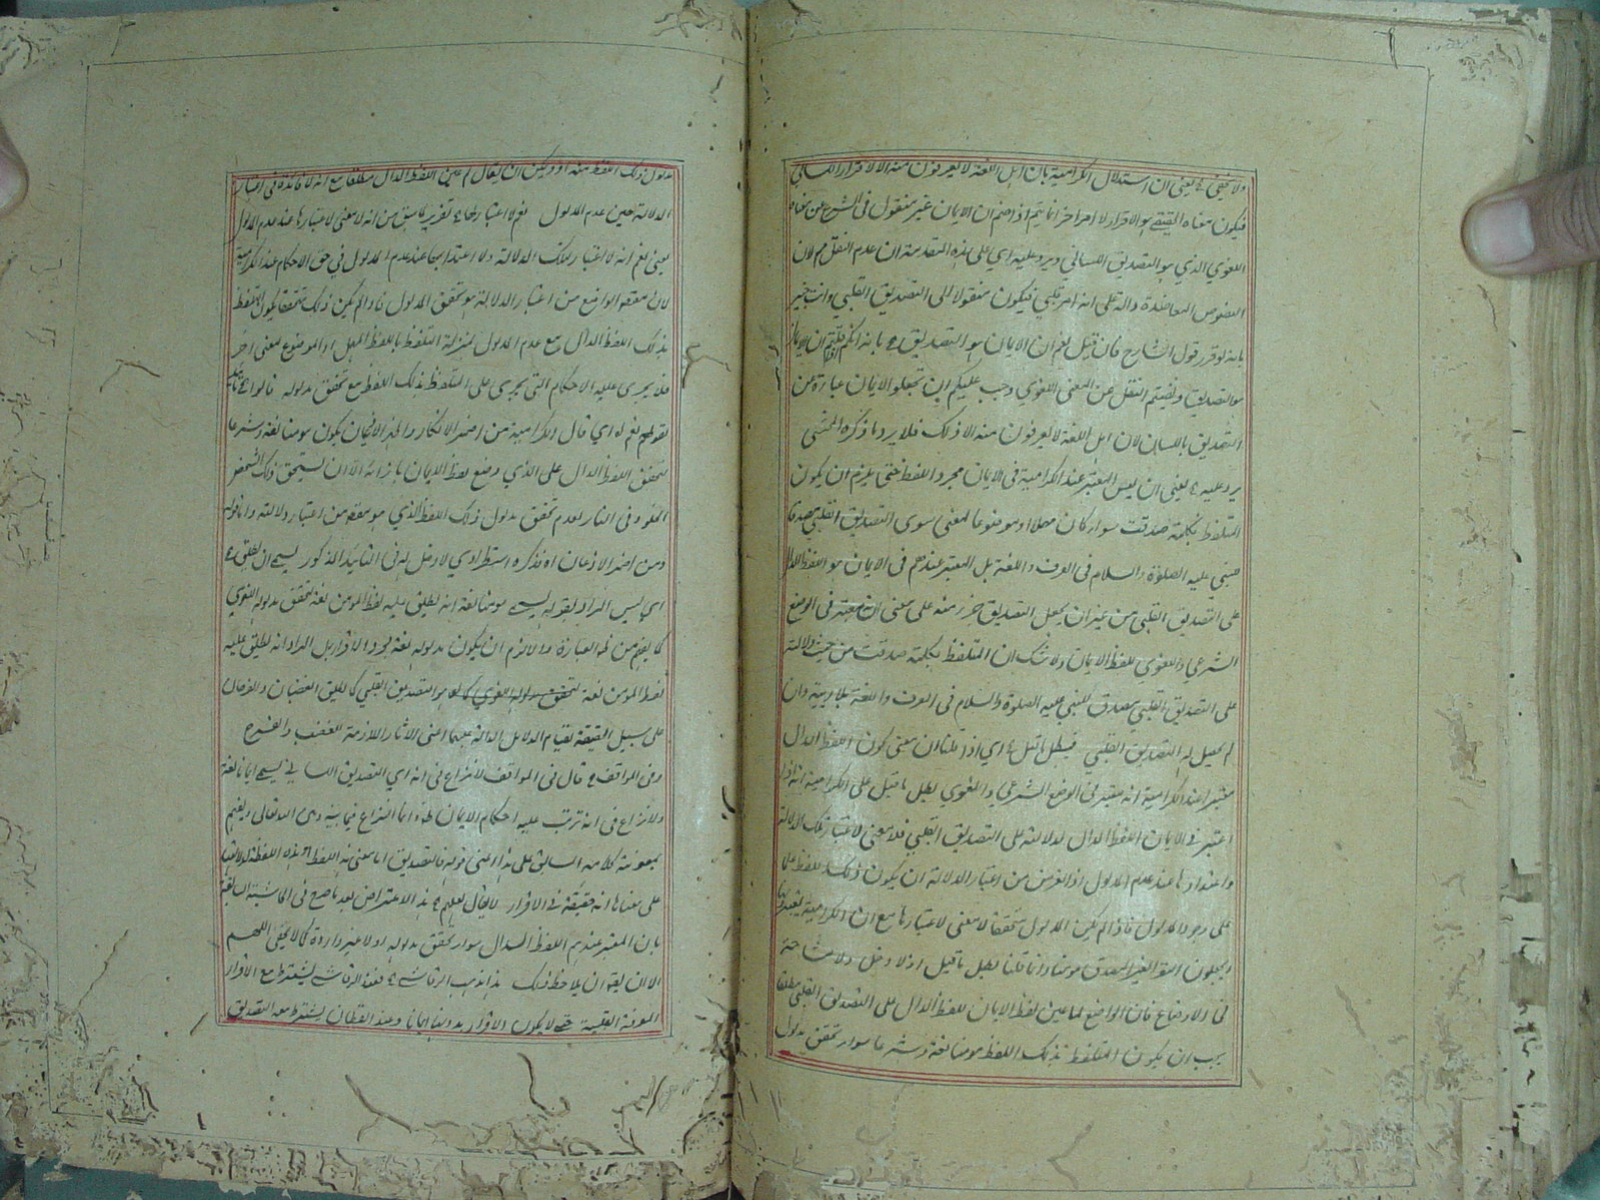 ولا يخفى يعني ان استدلال الكرامية بان اهل اللغة لا يعرفون منه الا الاقرار اللساني
فيكون معناه الحقيقي هو الاقرار لا امرا آخر انما يتم اذا ضم ان الايمان غير منقول في الشرع عن معناه
اللغوي الذي هو التصديق اللساني ويرد عليه اي على هذه المقدمة ان عدم النقل مم لان
النصوص المعاضدة دالة على انه امر قلبي فيكون منقولا الى التصديق القلبي وانت خبير
بانه لو قرر قول الشارح فان قيل نعم ان الايمان هو التصديق بانه انكم قلتم ان الايمان
هو التصديق ونفيتم النقل عن المعنى اللغوي وجب عليكم ان تجعلوا الايمان عبارة عن
التصديق باللسان لان اهل اللغة لا يعرفون منه الا ذلك فلا يرد ما ذكره المحشي
يرد عليه يعني ان ليس المعتبر عند الكرامية في الايمان مجرد اللفظ حتى يلزم ان يكون
المتلفظ بكلمة صدقت سواء كان مهملا او موضوعا لمعنى سوى التصديق القلبي مصدقا
للنبي عليه الصلوة والسلام في العرف واللغة بل المعتبر عندهم في الايمان هو اللفظ الدال
على التصديق القلبي من غير ان يجعل التصديق جزء منه على معنى انه معتبر في الوضع
الشرعي واللغوي للفظ الايمان ولا شك ان المتلفظ بكلمة صدقت من حيث دلالته
على التصديق القلبي مصدق للنبي عليه الصلوة والسلام في العرف واللغة بلا ريبة وان
لم يحصل له التصديق القلبي فبطل ما قيل اي اذا قلنا ان معنى كون اللفظ الدال
معتبرا عند الكرامية انه معتبر في الوضع الشرعي واللغوي بطل ما قيل على الكرامية انه اذا
اعتبر في الايمان اللفظ الدال لدلالته على التصديق القلبي فلا معنى لاعتبار تلك الدلالة
واعتدادها عند عدم المدلول اذ الغرض من اعتبار الدلالة ان يكون ذلك اللفظ
على وجود المدلول فاذا لم يكن المدلول متحققا لا معنى لاعتبارها مع ان الكرامية
ويجعلون المقر الغير المصدق مؤمنا وانما قلنا بطل ما قيل اذ لا دخل ولا مشاحة
في الاوضاع فان الواضع لما عين لفظ الايمان للفظ الدال على التصديق القلبي مطلقا
يجب ان يكون المتلفظ بذلك اللفظ مؤمنا لغة وشرعا سواء تحقق مدلول
مدلول ذلك اللفظ منه او لا ويمكن ان يقال لم عين اللفظ الدال مطلقا مع انه لا فائدة في اعتبار
الدلالة حين عدم المدلول نعم لا اعتبار تقرير لما سبق من انه لا معنى لاعتبارها عند عدم المدلول
يعني نعم انه لا اعتبار لتلك الدلالة ولا اعتداد بها عند عدم المدلول في حق الاحكام عند الكرامية
لان مقصود الواضع من اعتبار الدلالة هو تحقق المدلول فاذا لم يكن ذلك متحققا يكون التلفظ
بذلك اللفظ الدال مع عدم المدلول بمنزلة التلفظ باللفظ المهمل او الموضوع لمعنى آخر
فلا يجري عليه الاحكام التي يجري على المتلفظ بذلك اللفظ مع تحقق مدلوله قالوا
نعم له اي قال الكرامية من اضمر الانكار واظهر الايمان يكون مؤمنا لغة وشرعا
لتحقق اللفظ الدال على الذي وضع لفظ الايمان بازائه الا ان يستحق ذلك الشخص
الخلود في النار لعدم تحقق مدلول ذلك اللفظ الذي هو مقصود من اعتبار دلالته واما قوله
ومن اضمر الاذعان اه فذكره استطرادي لا دخل له في التأييد المذكور يسمى ان يطلق
اي ليس المراد بقوله يسمى مؤمنا لغة انه يطلق عليه لفظ المؤمن لغة لتحقق مدلوله اللغوي
كما يفهم من ظ العبارة والا لزم ان يكون مدلوله لغة مجرد الاقرار بل المراد انه يطلق عليه
لفظ المؤمن لغة لتحقق مدلوله اللغوي هو التصديق القلبي كما يطلق الغضبان والفرحان
على سبيل الحقيقة لقيام الدلائل الدالة عليهما اعني الآثار اللازمة للغضب والفرح
وفي المواقف قال في المواقف لا نزاع في انه اي التصديق اللساني يسمى ايمانا لغة
ولا نزاع في انه ترتب عليه احكام الايمان ظاهرا انما النزاع فيما بينه وبين الله تعالى ويفهم
بمعونة كلامه السابق على هذا وهي قوله فالتصديق اما معنى هذه اللفظة او هذه اللفظة لدلالتها
على معناها انه حقيقة في الاقرار لا يقال هذا الاعتراض بعد ما صرح في الحاشية السابقة
بان المعتبر عندهم اللفظ الدال سواء تحقق مدلوله او لا غير واردة كما لا يخفى اللهم
الا ان يقال ان يلاحظ ذلك هذا مذهب الرقاشي فعند الرقاشي يشترط مع الاقرار
المعرفة القلبية حتى لا يكون الاقرار بدونها ايمانا وعند القطان يشترط معه التصديق